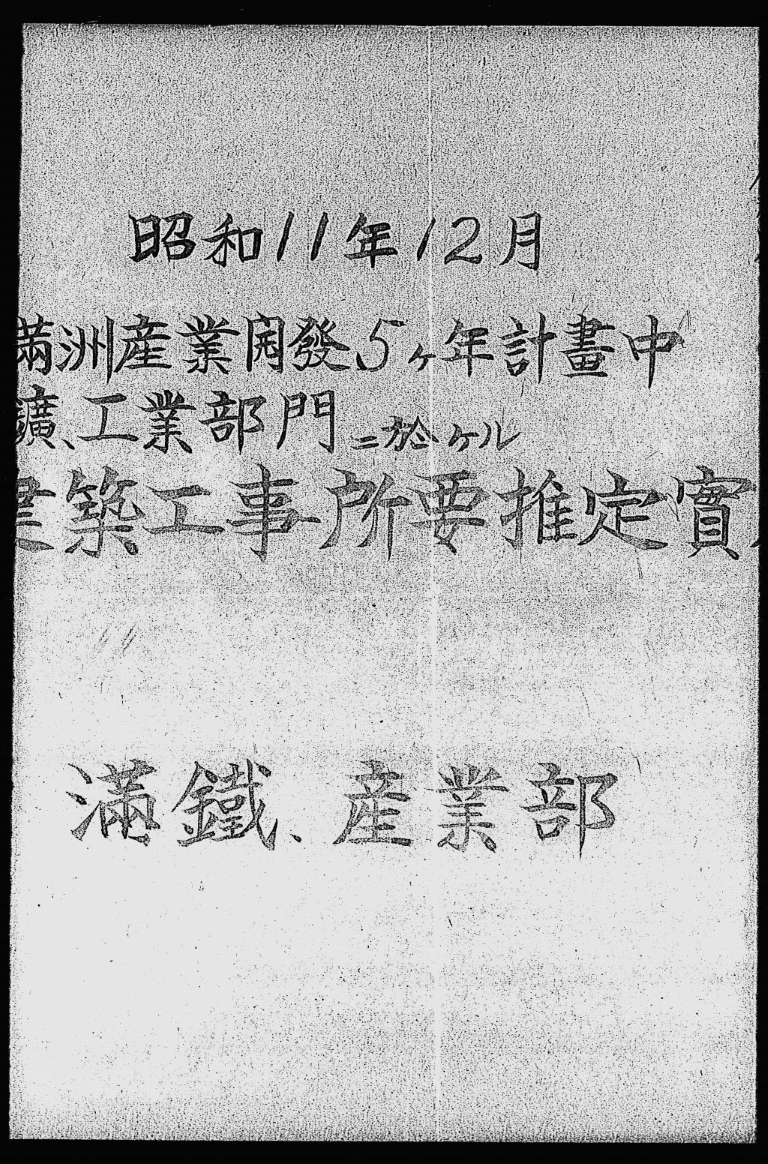 昭和11年12月
滿洲産業開發5ヶ年計畫中
鑛、工業部門ニ於ケル
建築工事所要推定實
滿鐵、産業部